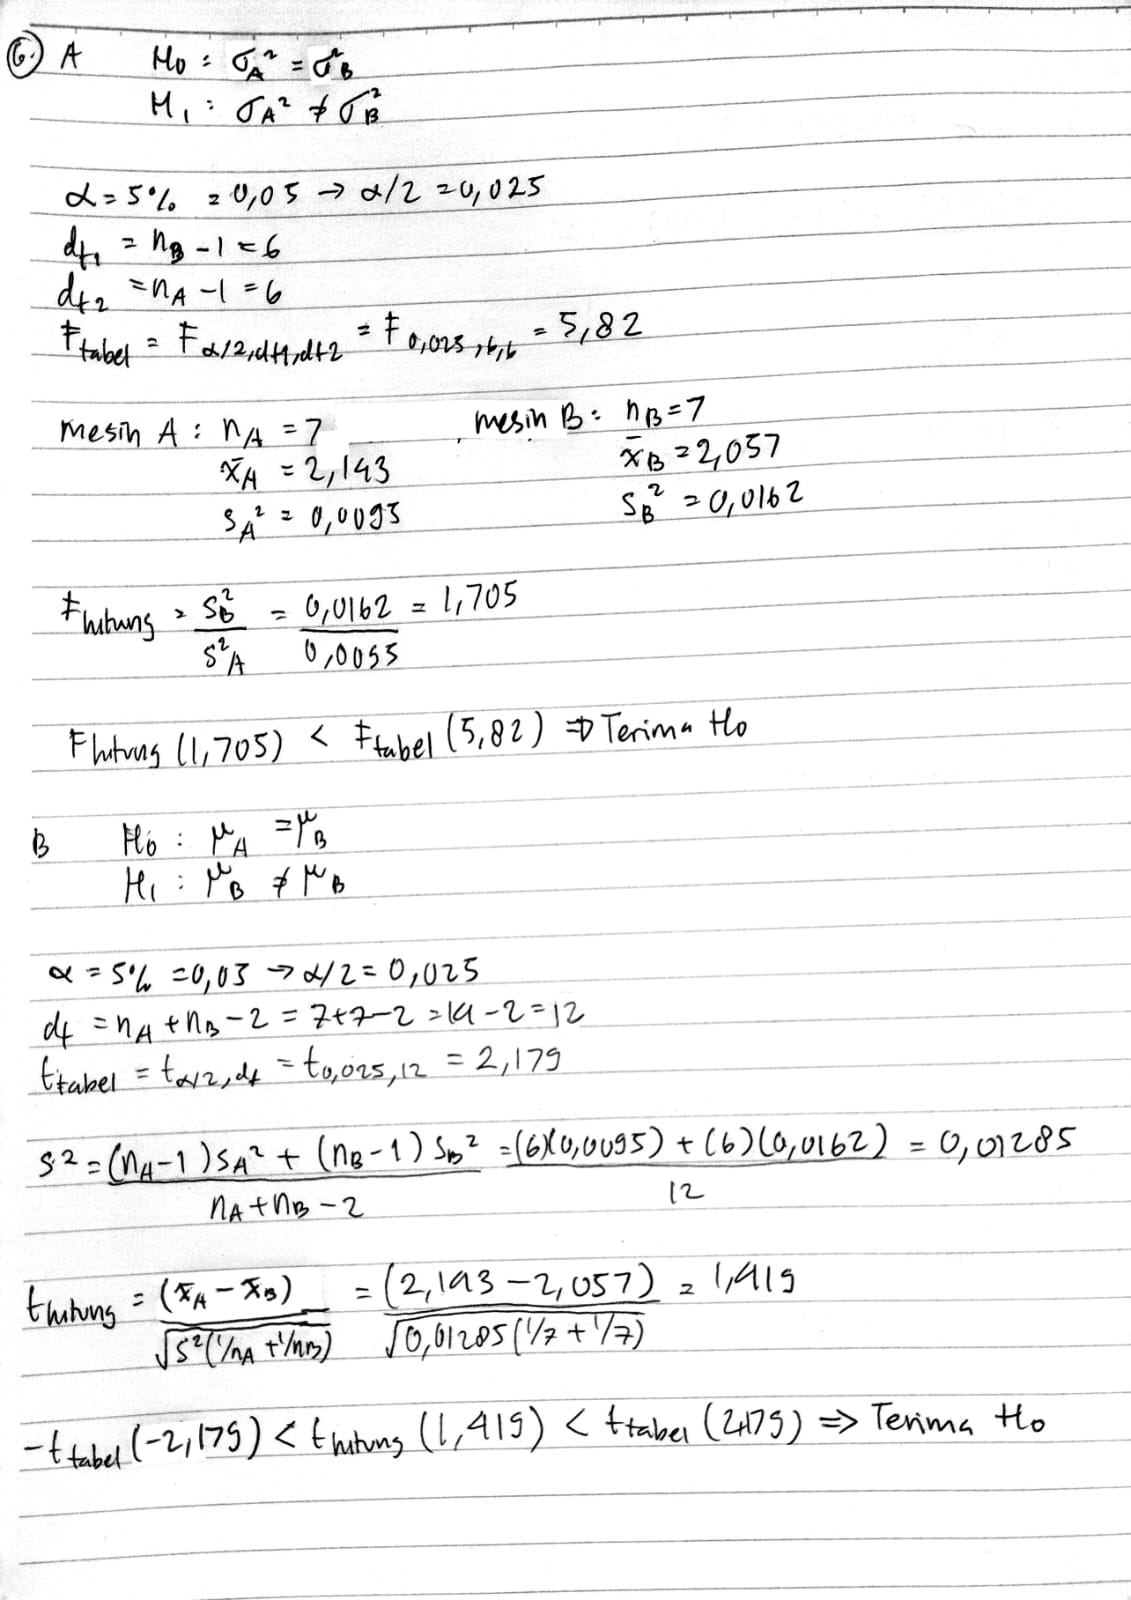 6. A H0 : σA² = σ²B
H1 : σA² ≠ σB²
α = 5% = 0,05 → α/2 = 0,025
df1 = nB - 1 = 6
df2 = nA - 1 = 6
Ftabel = Fα/2,df1,df2 = F0,025,6,6 = 5,82
mesin A : nA = 7 mesin B : nB = 7
x̄A = 2,143 x̄B = 2,057
SA² = 0,0095 SB² = 0,0162
Fhitung = SB²/S²A = 0,0162/0,0095 = 1,705
Fhitung (1,705) < Ftabel (5,82) ⇒ Terima H0
B H0 : μA = μB
H1 : μB ≠ μB
α = 5% = 0,05 → α/2 = 0,025
df = nA + nB - 2 = 7+7-2 = 14-2 = 12
ttabel = tα/2,df = t0,025,12 = 2,179
S² = (nA-1)SA² + (nB-1)SB² / nA+nB-2 = (6)(0,0095) + (6)(0,0162) / 12 = 0,01285
thitung = (x̄A - x̄B) / √S²(1/nA + 1/nB) = (2,143 - 2,057) / √0,01285(1/7 + 1/7) = 1,419
-ttabel (-2,179) < thitung (1,419) < ttabel (2,179) ⇒ Terima H0